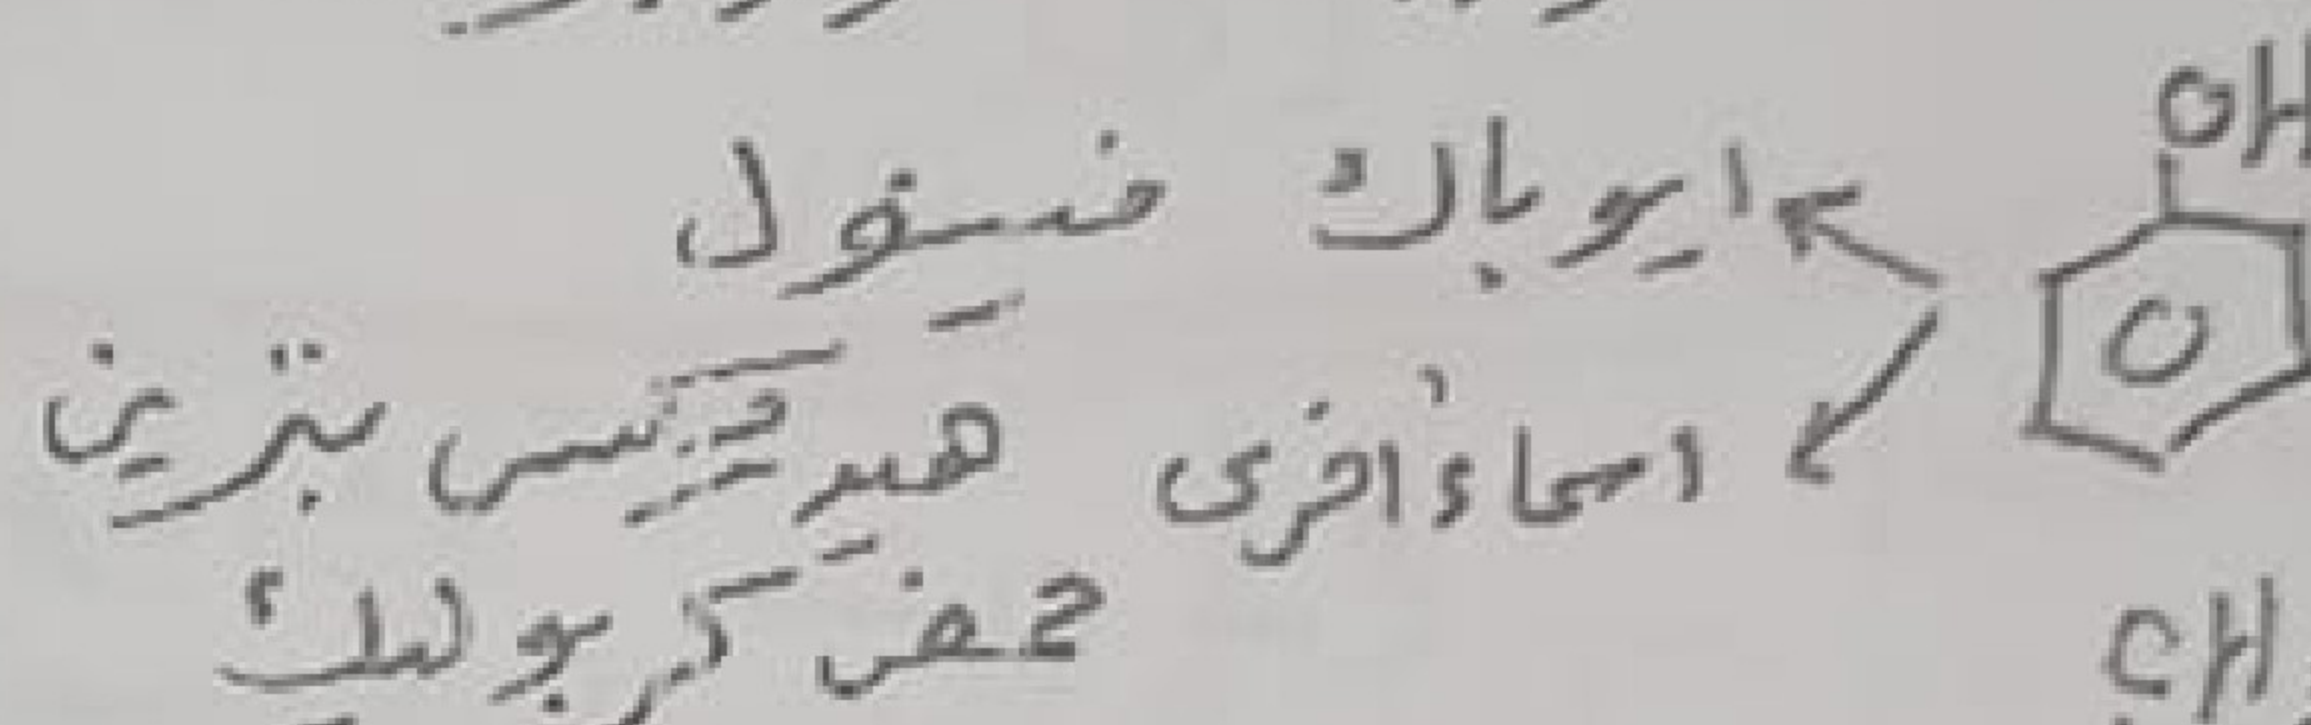 OH
ايوباك فينول
اسماء أخرى هيدركسي بنزين
حمض كربوليك
CH